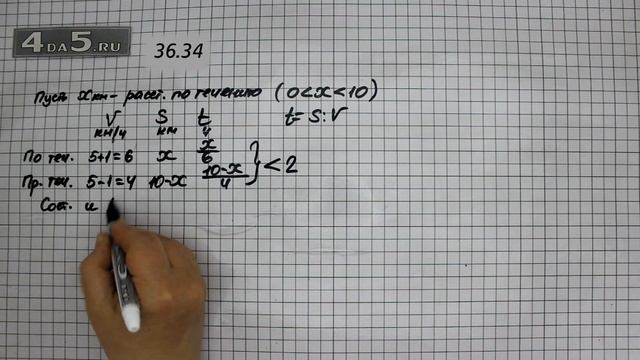 4DA5.RU
36.34
Пусть x км - расст. по течению (0<x<10)
V S t t=S:V
км/ч км ч
По теч. 5+1=6 x x/6
Пр. теч. 5-1=4 10-x (10-x)/4 } <2
Сост. и